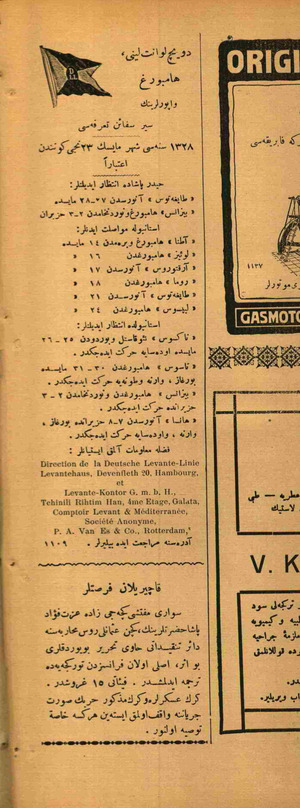 دويچ لوانت لينى،
هامبورغ
واپورلرينك
سير سفائن تعرفه‌سى
١٣٢٨ سنه‌سى شهر مايسك ٢٣نجى كونندن
اعتباراً
حيدر پاشاده انتظار ايديلنلر:
« طايغه‌توس » آنورسدن ٢٧-٢٨ مايسده
« بيزانس» هامبورغ ونوردنخامدن ٢-٣ حزيران
استانبوله مواصلت ايدنلر:
« آطنا » هامبورغ و برمه‌دن ١٤ مايسده
« لوئيز » هامبورغدن ١٦ »
« آرقتوروس » آنورسدن ١٧ »
« روما » هامبورغدن ١٨ »
« طايغه‌توس » آنورسدن ٢١ »
« ليپسوس » هامبورغدن ٢٤ »
استانبولده انتظار ايديلنلر:
« ناكسوس » نيوقاستل و بوردودن ٢٥-٢٦
مايسده اودساىه حركت ايده‌جكدر.
« تاسوس » هامبورغدن ٣٠-٣١ مايسده
بورغاز، وارنه وطونه‌يه حركت ايده‌جكدر.
« بيزانس » هامبورغدن ونوردنخامدن ٢-٣
حزيرانده حركت ايده‌جكدر.
« هانسا » آنورسدن ٧-٨ حزيرانده بورغاز،
وارنه، واودساىه حركت ايده‌جكدر.
فضله معلومات آلمق ايستيانلر:
Direction de la Deutsche Levante-Linie
Levantehaus, Devenfleth 20, Hambourg,
et
Levante-Kontor G. m. b. H.,
Tchinili Rihtim Han, 4me Etage, Galata,
Comptoir Levant & Méditerranée,
Société Anonyme,
P. A. Van Es & Co., Rotterdam,
آدرسنه مراجعت ايده بيليرلر. ١١٠٩
قاچيريلان فرصتلر
سوارى مفتشى كچه‌جى زاده عزت فؤاد
پاشا حضرتلرينك، كچن عثمانلى روس محاربه‌سنه
دائر تنقيداتى حاوى تحرير بيوردقلرى
بو اثر، اصلى اولان فرانسزدن توركجه‌يه‌ده
ترجمه ايدلمشدر. فيئاتى ١٥ غروشدر.
كرك عسكرلره وكرك مذكور حربك صورت
جرياننه واقف اولمق ايستين هركسه خاصةً
توصيه اولنور.
ORIGI
١١٣٧
GASMOTO
V. K